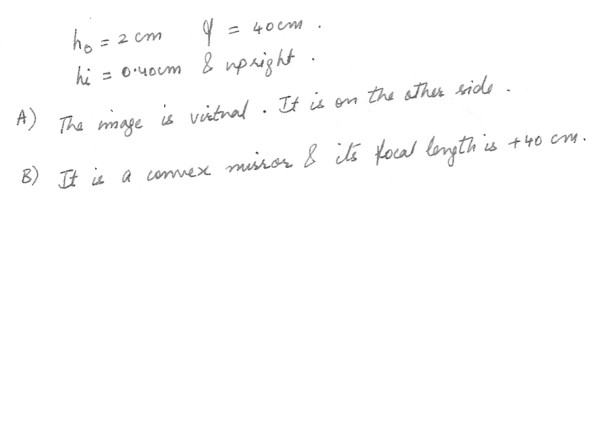 h₀ = 2 cm f = 40cm .
hi = 0.40cm & upright .
A) The image is virtual . It is on the other side .
B) It is a convex mirror & its focal length is +40 cm.